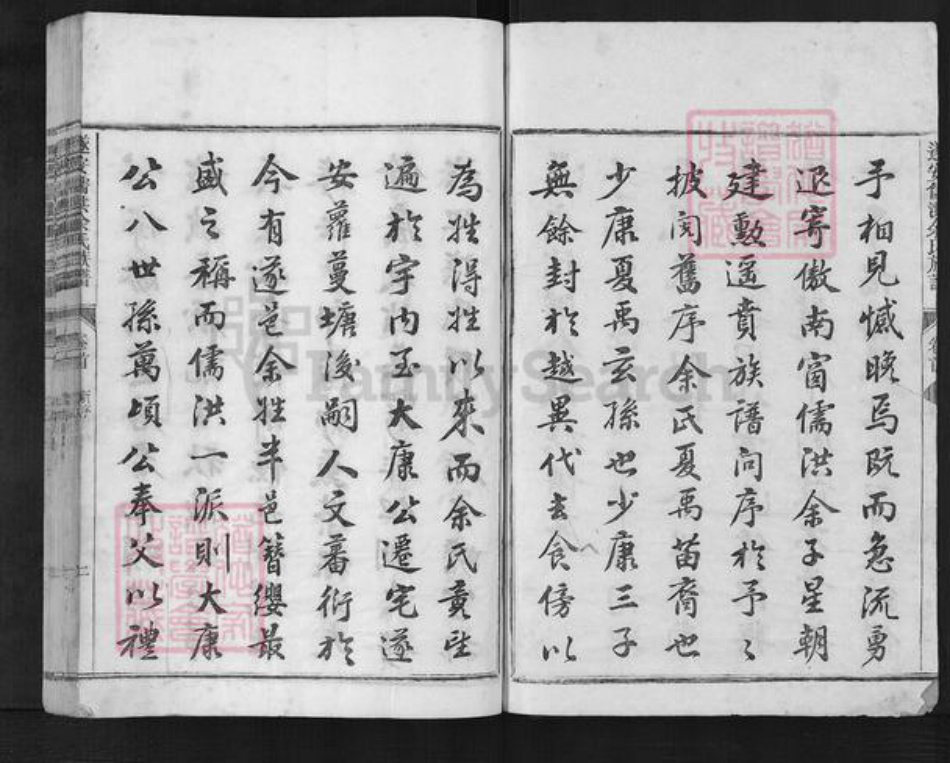 予相見憾晚焉既而急流勇
退寄傲南窗儒洪余子星朝
建勳遥賁族譜问序於予〻
披阅舊序余氏夏禹苗裔也
少康夏禹玄孫也少康三子
無餘封於越異代去食傍以
為姓得姓以來而余氏賁
遍於宇内至大康公遷宅遂
安蘿蔓塘後嗣人文蕃衍於
今有遂邑余姓半邑簪纓最
盛之稱而儒洪一派則大康
公八世孫萬頃公奉父以禮
FamilySearch